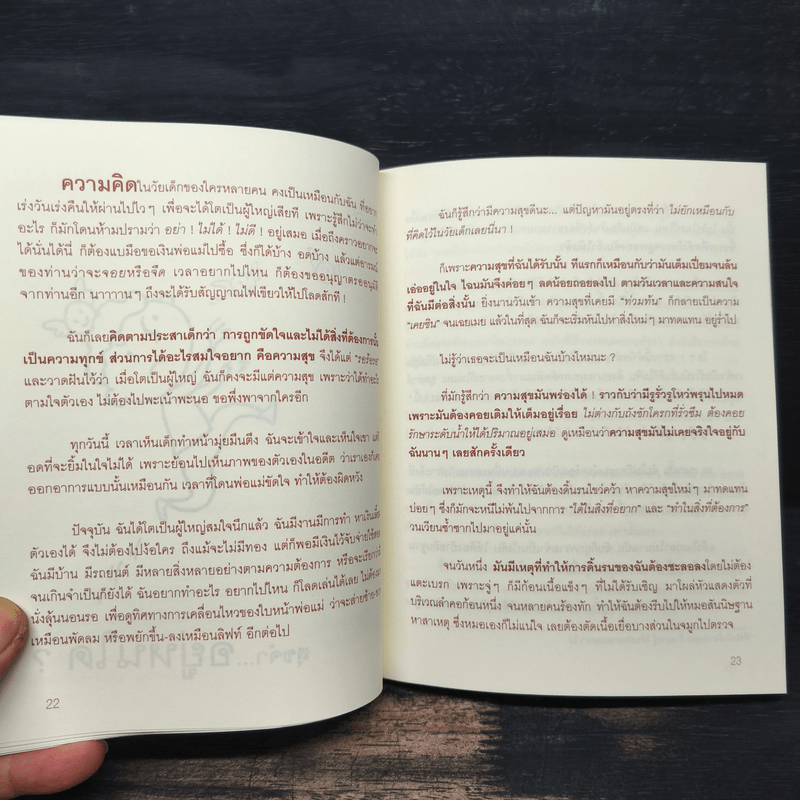 ความคิดในวัยเด็กของใครหลายคน คงเป็นเหมือนกับฉัน ที่อยาก
เร่งวันเร่งคืนให้ผ่านไปไวๆ เพื่อจะได้โตเป็นผู้ใหญ่เสียที เพราะรู้สึกไม่ว่าจะทำ
อะไร ก็มักโดนห้ามปรามว่า อย่า ! ไม่ได้ ! ไม่ดี ! อยู่เสมอ เมื่อถึงคราวอยากจะ
ได้นั่นได้นี่ ก็ต้องแบมือขอเงินพ่อแม่ไปซื้อ ซึ่งก็ได้บ้าง อดบ้าง แล้วแต่อารมณ์
ของท่านว่าจะจอยหรือจืด เวลาอยากไปไหน ก็ต้องขออนุญาตรออนุมัติ
จากท่านอีก นาาาานๆ ถึงจะได้รับสัญญาณไฟเขียวให้ไปโลดสักที !
ฉันก็เลยคิดตามประสาเด็กว่า การถูกขัดใจและไม่ได้สิ่งที่ต้องการนั้น
เป็นความทุกข์ ส่วนการได้อะไรสมใจอยาก คือความสุข จึงได้แต่ "รอร้อรอ"
และวาดฝันไว้ว่า เมื่อโตเป็นผู้ใหญ่ ฉันก็คงจะมีแต่ความสุข เพราะว่าได้ทำอะไร
ตามใจตัวเอง ไม่ต้องไปพะเน้าพะนอ ขอพึ่งพาจากใครอีก
ทุกวันนี้ เวลาเห็นเด็กทำหน้ามุ่ยมึนตึง ฉันจะเข้าใจและเห็นใจเขา แต่
อดที่จะยิ้มในใจไม่ได้ เพราะย้อนไปเห็นภาพของตัวเองในอดีต ว่าเราเองก็เคย
ออกอาการแบบนั้นเหมือนกัน เวลาที่โดนพ่อแม่ขัดใจ ทำให้ต้องผิดหวัง
ปัจจุบัน ฉันได้โตเป็นผู้ใหญ่สมใจนึกแล้ว ฉันมีงานมีการทำ หาเงินเลี้ยง
ตัวเองได้ จึงไม่ต้องไปง้อใคร ถึงแม้จะไม่มีทอง แต่ก็พอมีเงินไว้จับจ่ายใช้สอย
ฉันมีบ้าน มีรถยนต์ มีหลายสิ่งหลายอย่างตามความต้องการ หรือจะเรียกว่ามี
จนเกินจำเป็นก็ยังได้ ฉันอยากทำอะไร อยากไปไหน ก็โลดเล่นได้เลย ไม่ต้องมา
นั่งลุ้นนอนรอ เพื่อดูทิศทางการเคลื่อนไหวของใบหน้าพ่อแม่ ว่าจะส่ายซ้าย-ขวา
เหมือนพัดลม หรือพยักขึ้น-ลงเหมือนลิฟท์ อีกต่อไป
22
ฉันก็รู้สึกว่ามีความสุขดีนะ... แต่ปัญหามันอยู่ตรงที่ว่า ไม่ยักเหมือนกับ
ที่คิดไว้ในวัยเด็กเลยนี่นา !
ก็เพราะความสุขที่ฉันได้รับนั้น ทีแรกก็เหมือนกับว่ามันเต็มเปี่ยมจนล้น
เอ่ออยู่ในใจ ไฉนมันจึงค่อยๆ ลดน้อยถอยลงไป ตามวันเวลาและความสนใจ
ที่ฉันมีต่อสิ่งนั้น ยิ่งนานวันเข้า ความสุขที่เคยมี "ท่วมท้น" ก็กลายเป็นความ
"เคยชิน" จนเฉยเมย แล้วในที่สุด ฉันก็จะเริ่มหันไปหาสิ่งใหม่ๆ มาทดแทน อยู่ร่ำไป
ไม่รู้ว่าเธอจะเป็นเหมือนฉันบ้างไหมนะ ?
ที่มักรู้สึกว่า ความสุขมันพร่องได้ ! ราวกับว่ามีรูรั่วรูโหว่พรุนไปหมด
เพราะมันต้องคอยเติมให้เต็มอยู่เรื่อย ไม่ต่างกับถังชักโครกที่รั่วซึม ต้องคอย
รักษาระดับน้ำให้ได้ปริมาณอยู่เสมอ ดูเหมือนว่าความสุขมันไม่เคยจริงใจอยู่กับ
ฉันนานๆ เลยสักครั้งเดียว
เพราะเหตุนี้ จึงทำให้ฉันต้องดิ้นรนไขว่คว้า หาความสุขใหม่ๆ มาทดแทน
บ่อยๆ ซึ่งก็มักจะหนีไม่พ้นไปจากการ "ได้ในสิ่งที่อยาก" และ "ทำในสิ่งที่ต้องการ"
วนเวียนซ้ำซากไปมาอยู่แค่นั้น
จนวันหนึ่ง มันมีเหตุที่ทำให้การดิ้นรนของฉันต้องชะลอลงโดยไม่ต้อง
แตะเบรก เพราะจู่ๆ ก็มีก้อนเนื้อแข็งๆ ที่ไม่ได้รับเชิญ มาโผล่หัวแสดงตัวที่
บริเวณลำคอก้อนหนึ่ง จนหลายคนร้องทัก ทำให้ฉันต้องรีบไปให้หมอสันนิษฐาน
หาสาเหตุ ซึ่งหมอเองก็ไม่แน่ใจ เลยต้องตัดเนื้อเยื่อบางส่วนในจมูกไปตรวจ
23